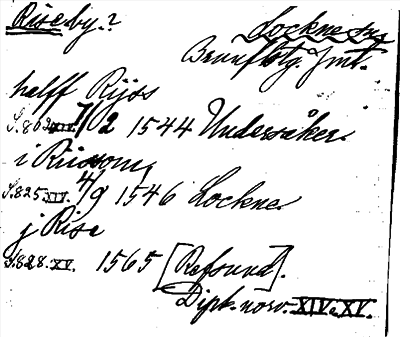 Riseby.?
Lockne sn
Brunflo tg. Jmt.
helff Rijos
S. 802 XIV. 7/2 1544 Undersåker.
i Riisom,
S. 825. XV. 4/9 1546 Lockne.
j Rise
S. 828. XV. 1565 [Refsund].
Dipl. norv. XIV o XV.